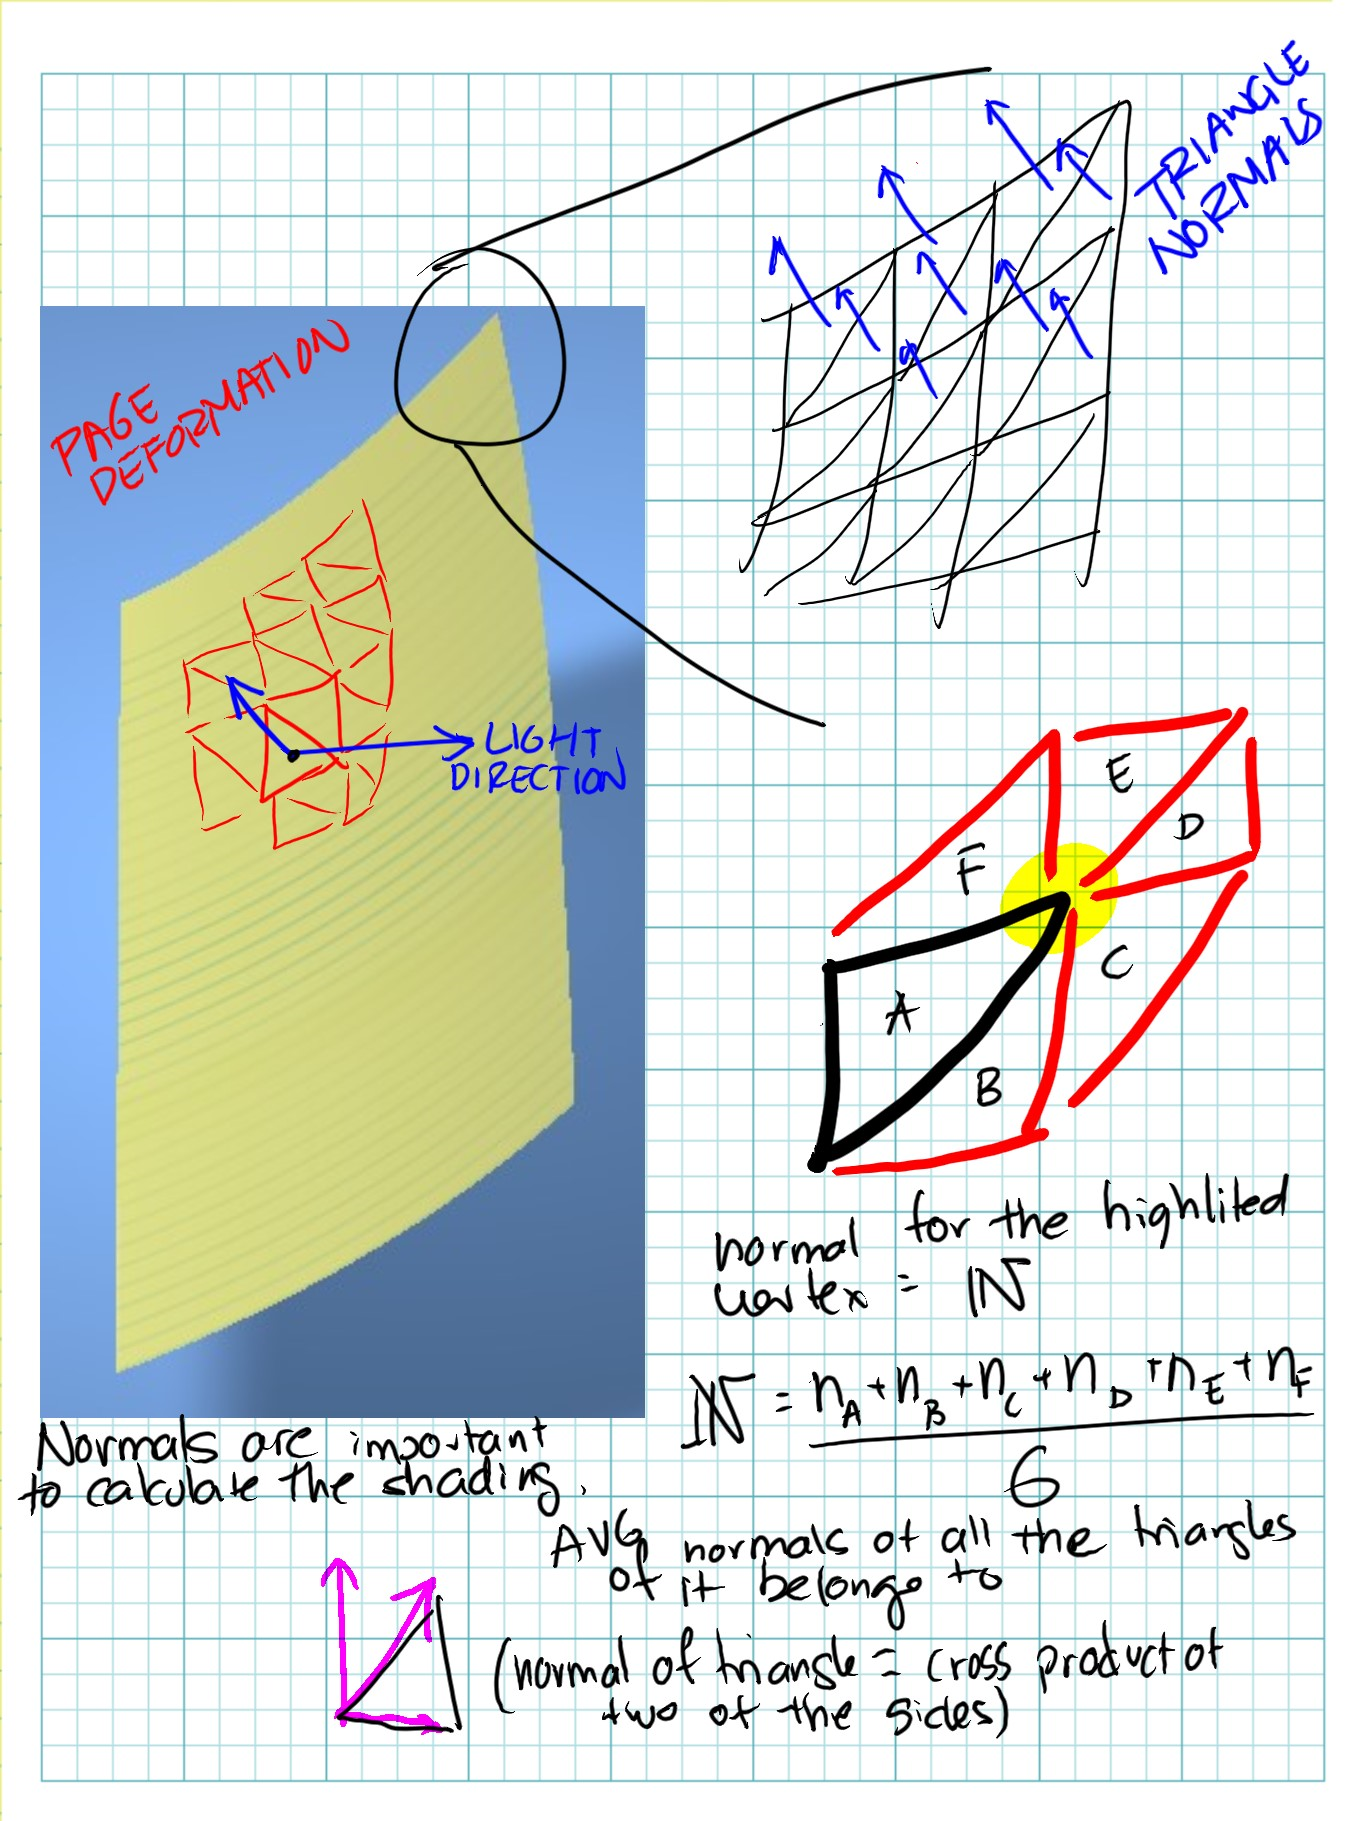 TRIANGLE
NORMALS
PAGE
DEFORMATION
LIGHT
DIRECTION
E
D
F
C
A
B
normal for the highlited
vertex = N
N = nA + nB + nC + nD + nE + nF
6
Normals are important
to calculate the shading.
AVG normals of all the triangles
of it belongs to
(normal of triangle = cross product of
two of the sides)